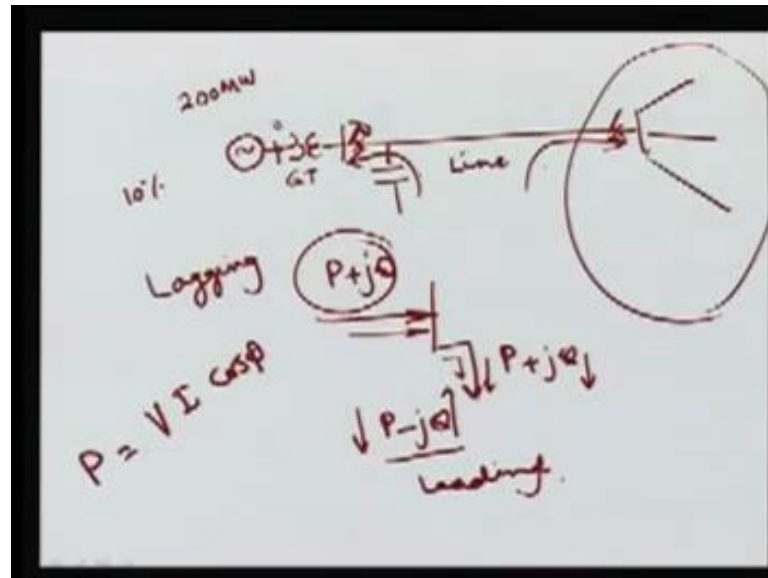 200MW
10%
GT
Line
Lagging
P+jQ
P = VI cosφ
P+jQ
P-jQ
Leading.